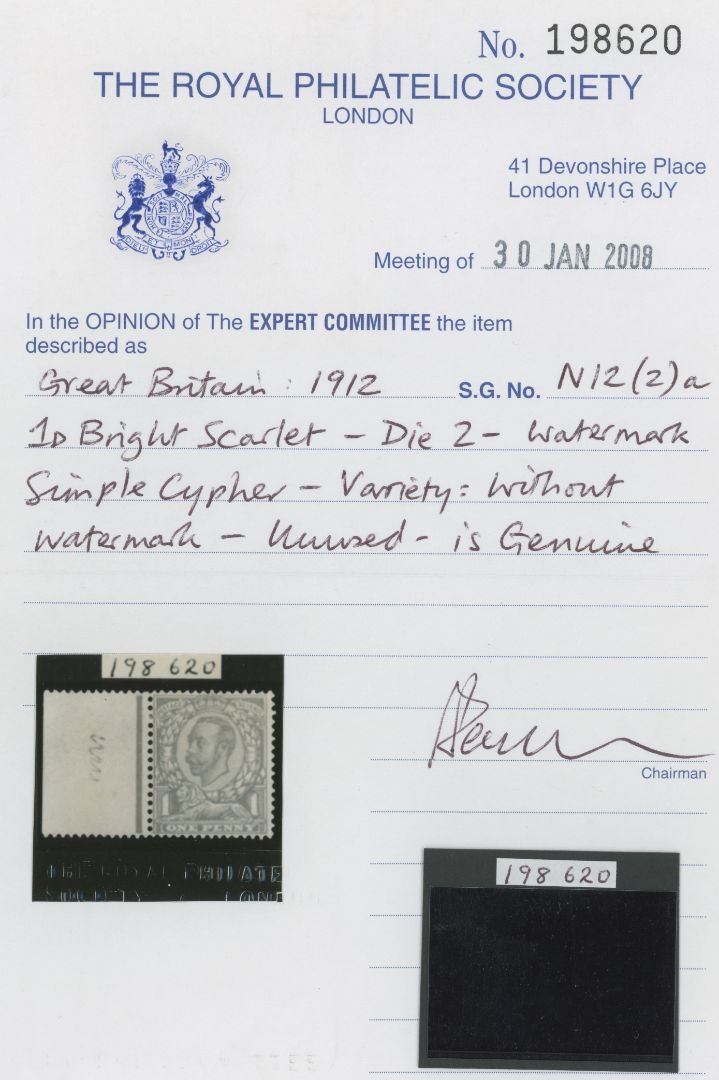 No. 198620
THE ROYAL PHILATELIC SOCIETY
LONDON
41 Devonshire Place
London W1G 6JY
DIEU ET MON DROIT
Meeting of 30 JAN 2008
In the OPINION of The EXPERT COMMITTEE the item
described as
Great Britain : 1912 S.G. No. N12(2)a
1D Bright Scarlet – Die 2 – Watermark
Simple Cypher – Variety: Without
Watermark – Unused – is Genuine
198 620
1 1
ONE PENNY
THE ROYAL PHILATE
SOCIETY LOND
Chairman
198 620